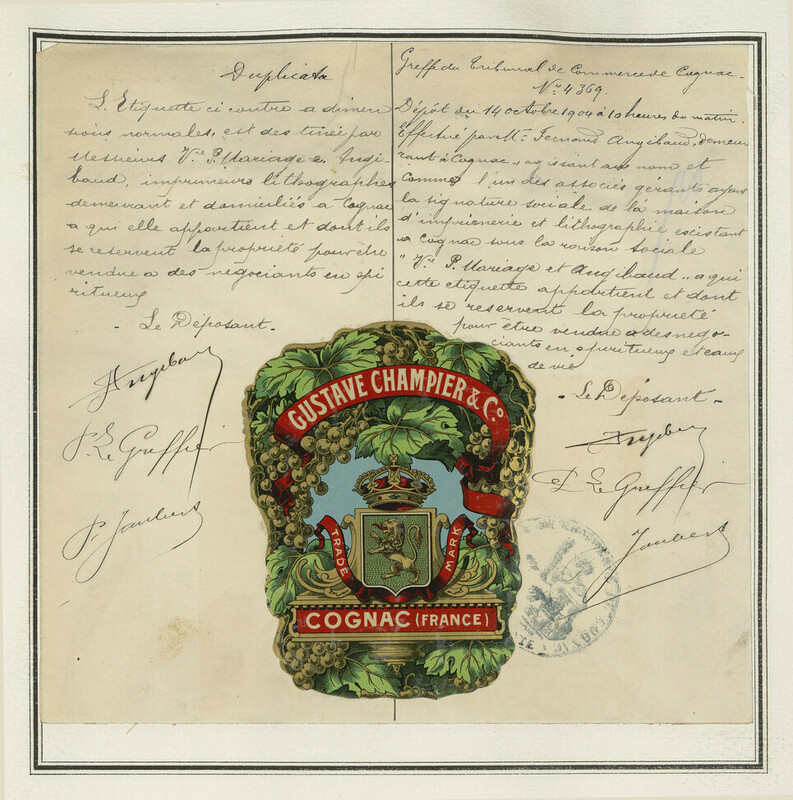 Duplicata
L'Etiquette ci contre a dimen
sions normales, est des tinée par
Messieurs Vve P. Mariage & Angi
baud, imprimeurs lithographes
demeurant et domiciliés a Cognac
a qui elle appartient et dont ils
se reservent la propriété pour être
vendue a des negociants en spi
ritueux
- Le Déposant -
Angibaud
P. Le Greffier
P. Joubert
Greffe du Tribunal de Commerce de Cognac -
No 4369.
Dépôt du 14 octobre 1904 à 10 heures du matin.
Effectué par Mr. Fernand Angibaud, demeu
rant à Cognac, agissant au nom et
comme l'un des associés gérants ayant
la signature sociale de la maison
d'imprimerie et lithographie existant
a Cognac sous la raison sociale
"Vve P. Mariage et Angibaud" a qui
cette etiquette appartient et dont
ils se reservent la propriété
pour être vendue a des nego-
ciants en spiritueux et eaux
de vie
- Le Déposant -
Angibaud
P. Le Greffier
Joubert
GUSTAVE CHAMPIER & Co
TRADE MARK
COGNAC (FRANCE)